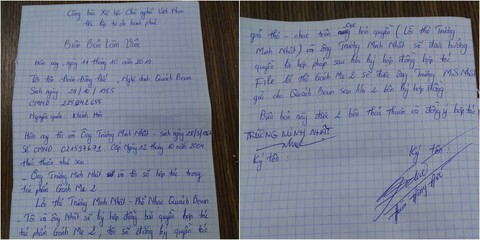 Cộng hòa Xã hội Chủ nghĩa Việt Nam
Độc lập tự do hạnh phúc
Biên Bản Làm Việc
Hôm nay, ngày 11 tháng 10 năm 2017.
Tôi tên Đoàn Đông Đức, Nghệ danh: Quách Beem
Sinh ngày: 28/10/1985
CMND:
Nguyên quán: Khánh Hòa
Hôm nay tôi và Ông Trương Minh Nhật - sinh ngày
Số CMND: 024597671 Cấp Ngày 22 tháng 10 năm 2004
thỏa thuận như sau
- Ông Trương Minh Nhật và tôi sẽ hợp tác trong
tác phẩm Gánh Mẹ 2
Lời thơ Trương Minh Nhật - Phổ Nhạc Quách Beem
- Tôi và ông Nhật sẽ ký hợp đồng bản quyền hợp tác
tác phẩm Gánh Mẹ 2, tôi sẽ đứng ký quyền tác
giả thơ - nhạc trên cục bản quyền (Lời thơ Trương
Minh Nhật) và ông Trương Minh Nhật sẽ được hưởng
quyền lợi hợp pháp sau khi ký hợp đồng hợp tác.
File lời thơ Gánh Mẹ 2 sẽ được ông Trương Minh Nhật
gửi cho Quách Beem sau khi 2 bên ký hợp đồng
Biên bản này được 2 bên thỏa thuận và đồng ý hợp tác
TRƯƠNG MINH NHẬT
Ký tên:
Ký tên:
Đoàn Đông Đức